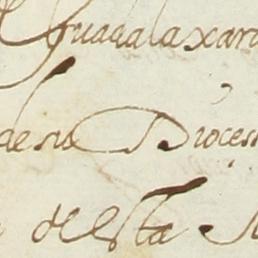 Guadalaxara
de su Dioces
de esta